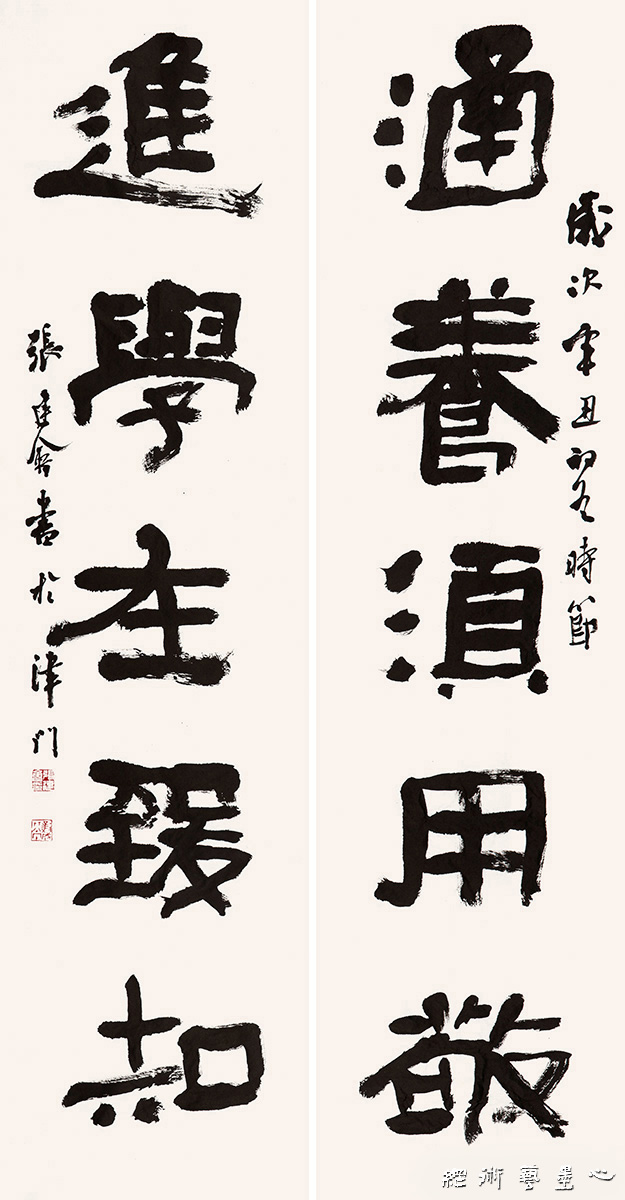 歲次辛丑初冬時節
涵養須用敬
進學在致知
張建會書於津門
心畫藝術經